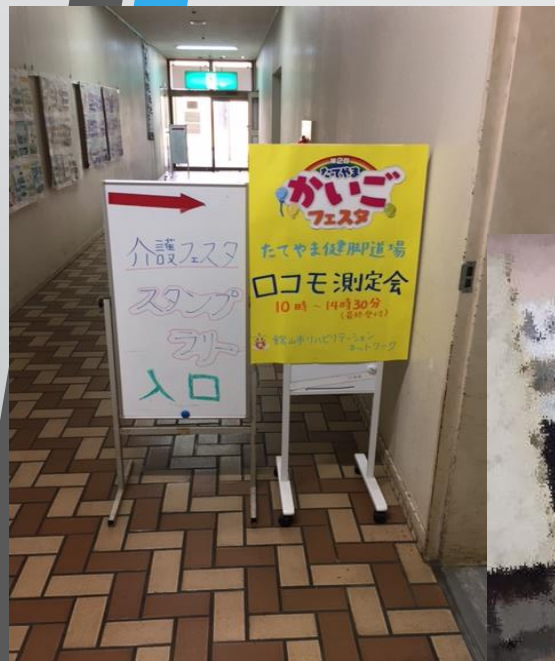 介護フェスタ
スタンプ
ラリー
入口
第2回
たてやま
かいご
フェスタ
たてやま健脚道場
ロコモ測定会
10時~14時30分
(最終受付)
館山市リハビリテーション
ネットワーク